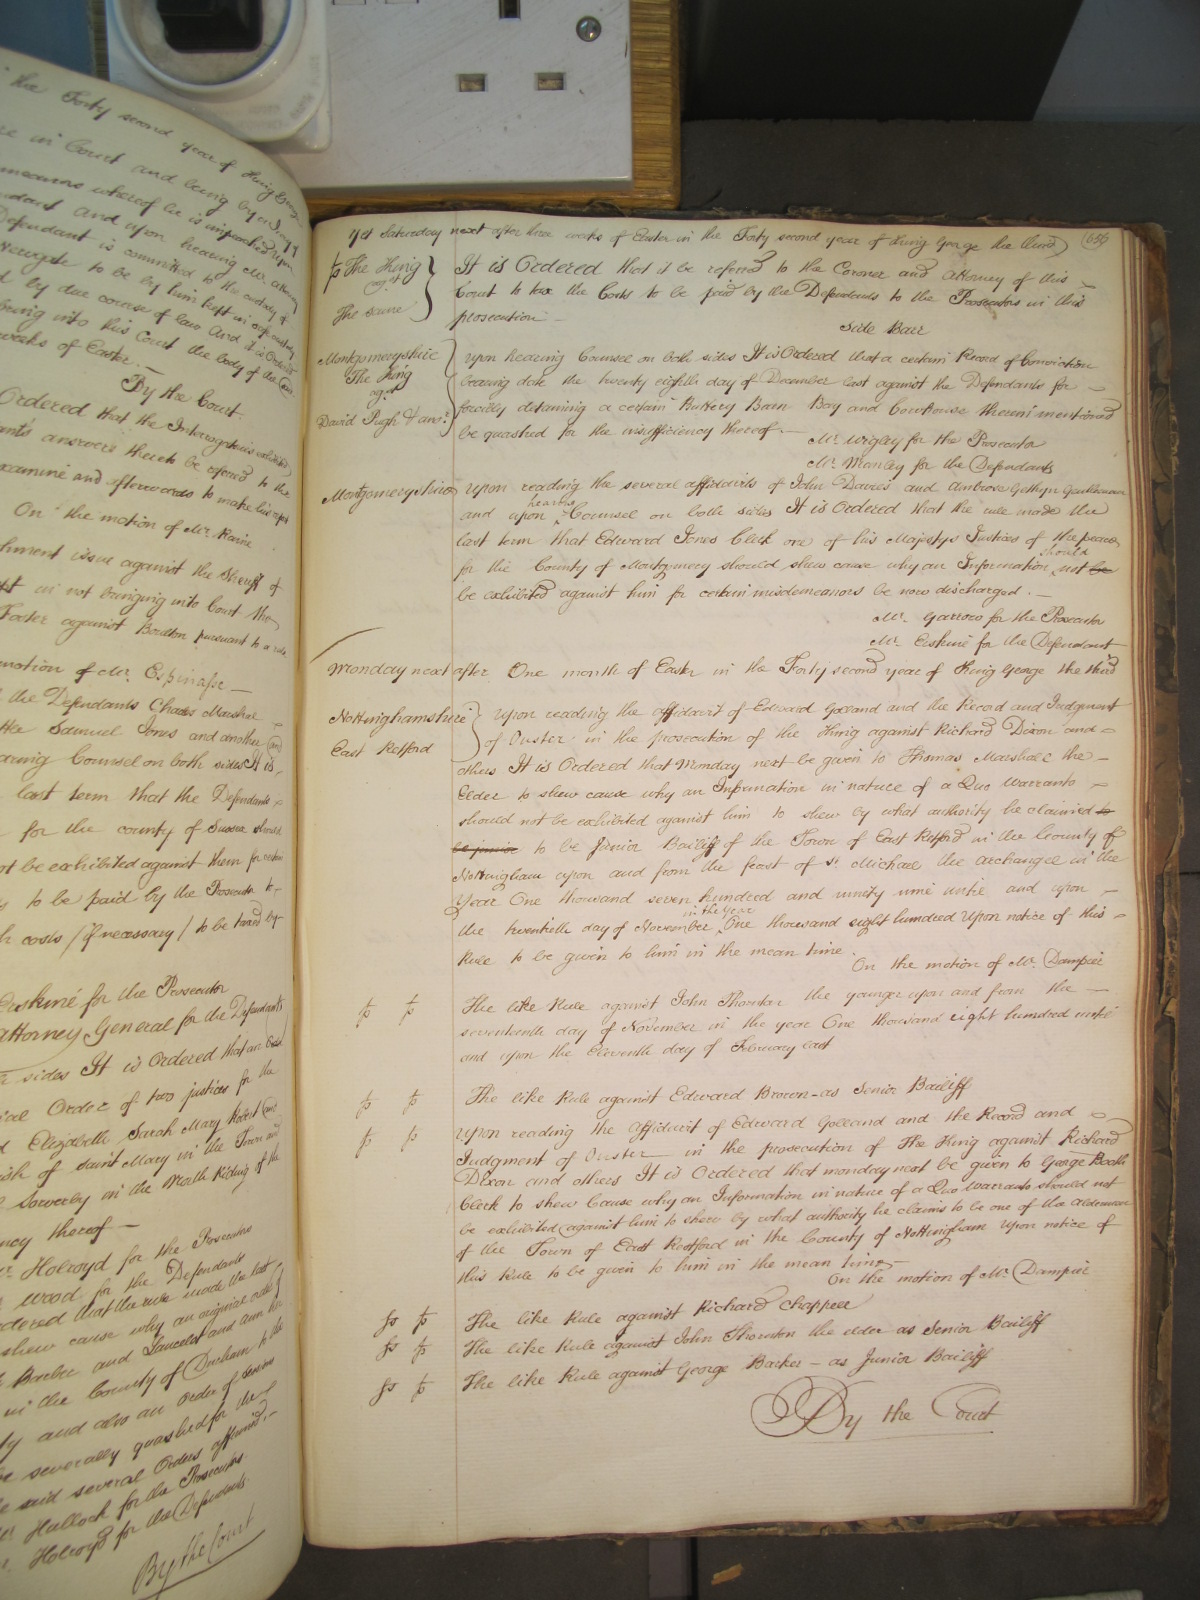 the Forty second year of King George
in Court and being by
means whereof he is impeached upon
and upon hearing Mr. Attorney
Defendant is committed to the custody of
Newgate to be by him kept in safe custody
by due course of law And it is Ordered
bring into this Court the body of the
weeks of Easter.
By the Court.
Ordered that the Interrogatories exhibited
answers thereto be referred to the
examine and afterwards to make his report
On the motion of Mr. Raine
issue against the Sheriff of
in not bringing into Court the
Foster against Boulton pursuant to a rule
motion of Mr. Espinasse —
the Defendants Charles Marshal
the Samuel Jones and another and
hearing Counsel on both sides It is
last term that the Defendants
for the county of Sussex should
not be exhibited against them for certain
to be paid by the Prosecutor to
costs / if necessary / to be taxed by
Erskine for the Prosecutor
Attorney General for the Defendants
sides It is Ordered that an
Order of two justices for the
Elizabeth Sarah Mary Robert and
of Saint Mary in the Town and
Sowerby in the North Riding of the
thereof —
Holroyd for the Prosecutors
Wood for the Defendants
Ordered that the rule made the last
shew cause why an original order
Barber and and Ann his
in the County of Durham to the
and also an Order of sessions
be severally quashed for the
said several Orders affirmed.
Hullock for the Prosecutors
Holroyd for the Defendants
By the Court
Yet Saturday next after three weeks of Easter in the Forty second year of King George the third 656
The King
agt
The same
It is Ordered that it be referred to the Coroner and Attorney of this
Court to tax the Costs to be paid by the Defendants to the Prosecutors in this
prosecution
Side Barr
Montgomeryshire
The King
agt
David Pugh & anor.
Upon hearing Counsel on both sides It is Ordered that a certain Record of Conviction
bearing date the twenty eighth day of December last against the Defendants for
forcibly detaining a certain Buttery Barn Bay and Cowhouse therein mentioned
be quashed for the insufficiency thereof.
Mr. Wigley for the Prosecutor
Mr. Manley for the Defendants
Montgomeryshire
Upon reading the several affidavits of John Davies and Ambrose Gethyn
and upon hearing Counsel on both sides It is Ordered that the rule made the
last term that Edward Jones Clerk one of his Majestys Justices of the peace
for the County of Montgomery should shew cause why an Information should not be
be exhibited against him for certain misdemeanors be now discharged.
Mr. Garrow for the Prosecutor
Mr. Erskine for the Defendant
Monday next after One month of Easter in the Forty second year of King George the third
Nottinghamshire
East Retford
Upon reading the affidavit of Edward Golland and the Record and Judgment
of Ouster in the prosecution of the King against Richard Dixon and
others It is Ordered that Monday next be given to Thomas Marshall the
Elder to shew cause why an Information in nature of a Quo Warranto
should not be exhibited against him to shew by what authority he claimed to
be junior to be Junior Bailiff of the Town of East Retford in the County of
Nottingham upon and from the feast of St. Michael the archangel in the
Year One thousand seven hundred and ninety nine until and upon
the twentieth day of November in the Year One thousand eight hundred Upon notice of this
Rule to be given to him in the mean time.
On the motion of Mr. Dampier
The like Rule against John Thornton the younger upon and from the
seventeenth day of November in the year One thousand eight hundred until
and upon the Eleventh day of February last
The like Rule against Edward Brown as Senior Bailiff
Upon reading the Affidavit of Edward Golland and the Record and
Judgment of Ouster in the prosecution of The King against Richard
Dixon and others It is Ordered that monday next be given to George Booth
Clerk to shew Cause why an Information in nature of a Quo Warranto should not
be exhibited against him to shew by what authority he claims to be one of the Aldermen
of the Town of East Reetford in the County of Nottingham Upon notice of
this Rule to be given to him in the mean time
On the motion of Mr. Dampier
The like Rule against Richard Chappell
The like Rule against John Thornton the elder as Senior Bailiff
The like Rule against George Barker — as Junior Bailiff
By the Court